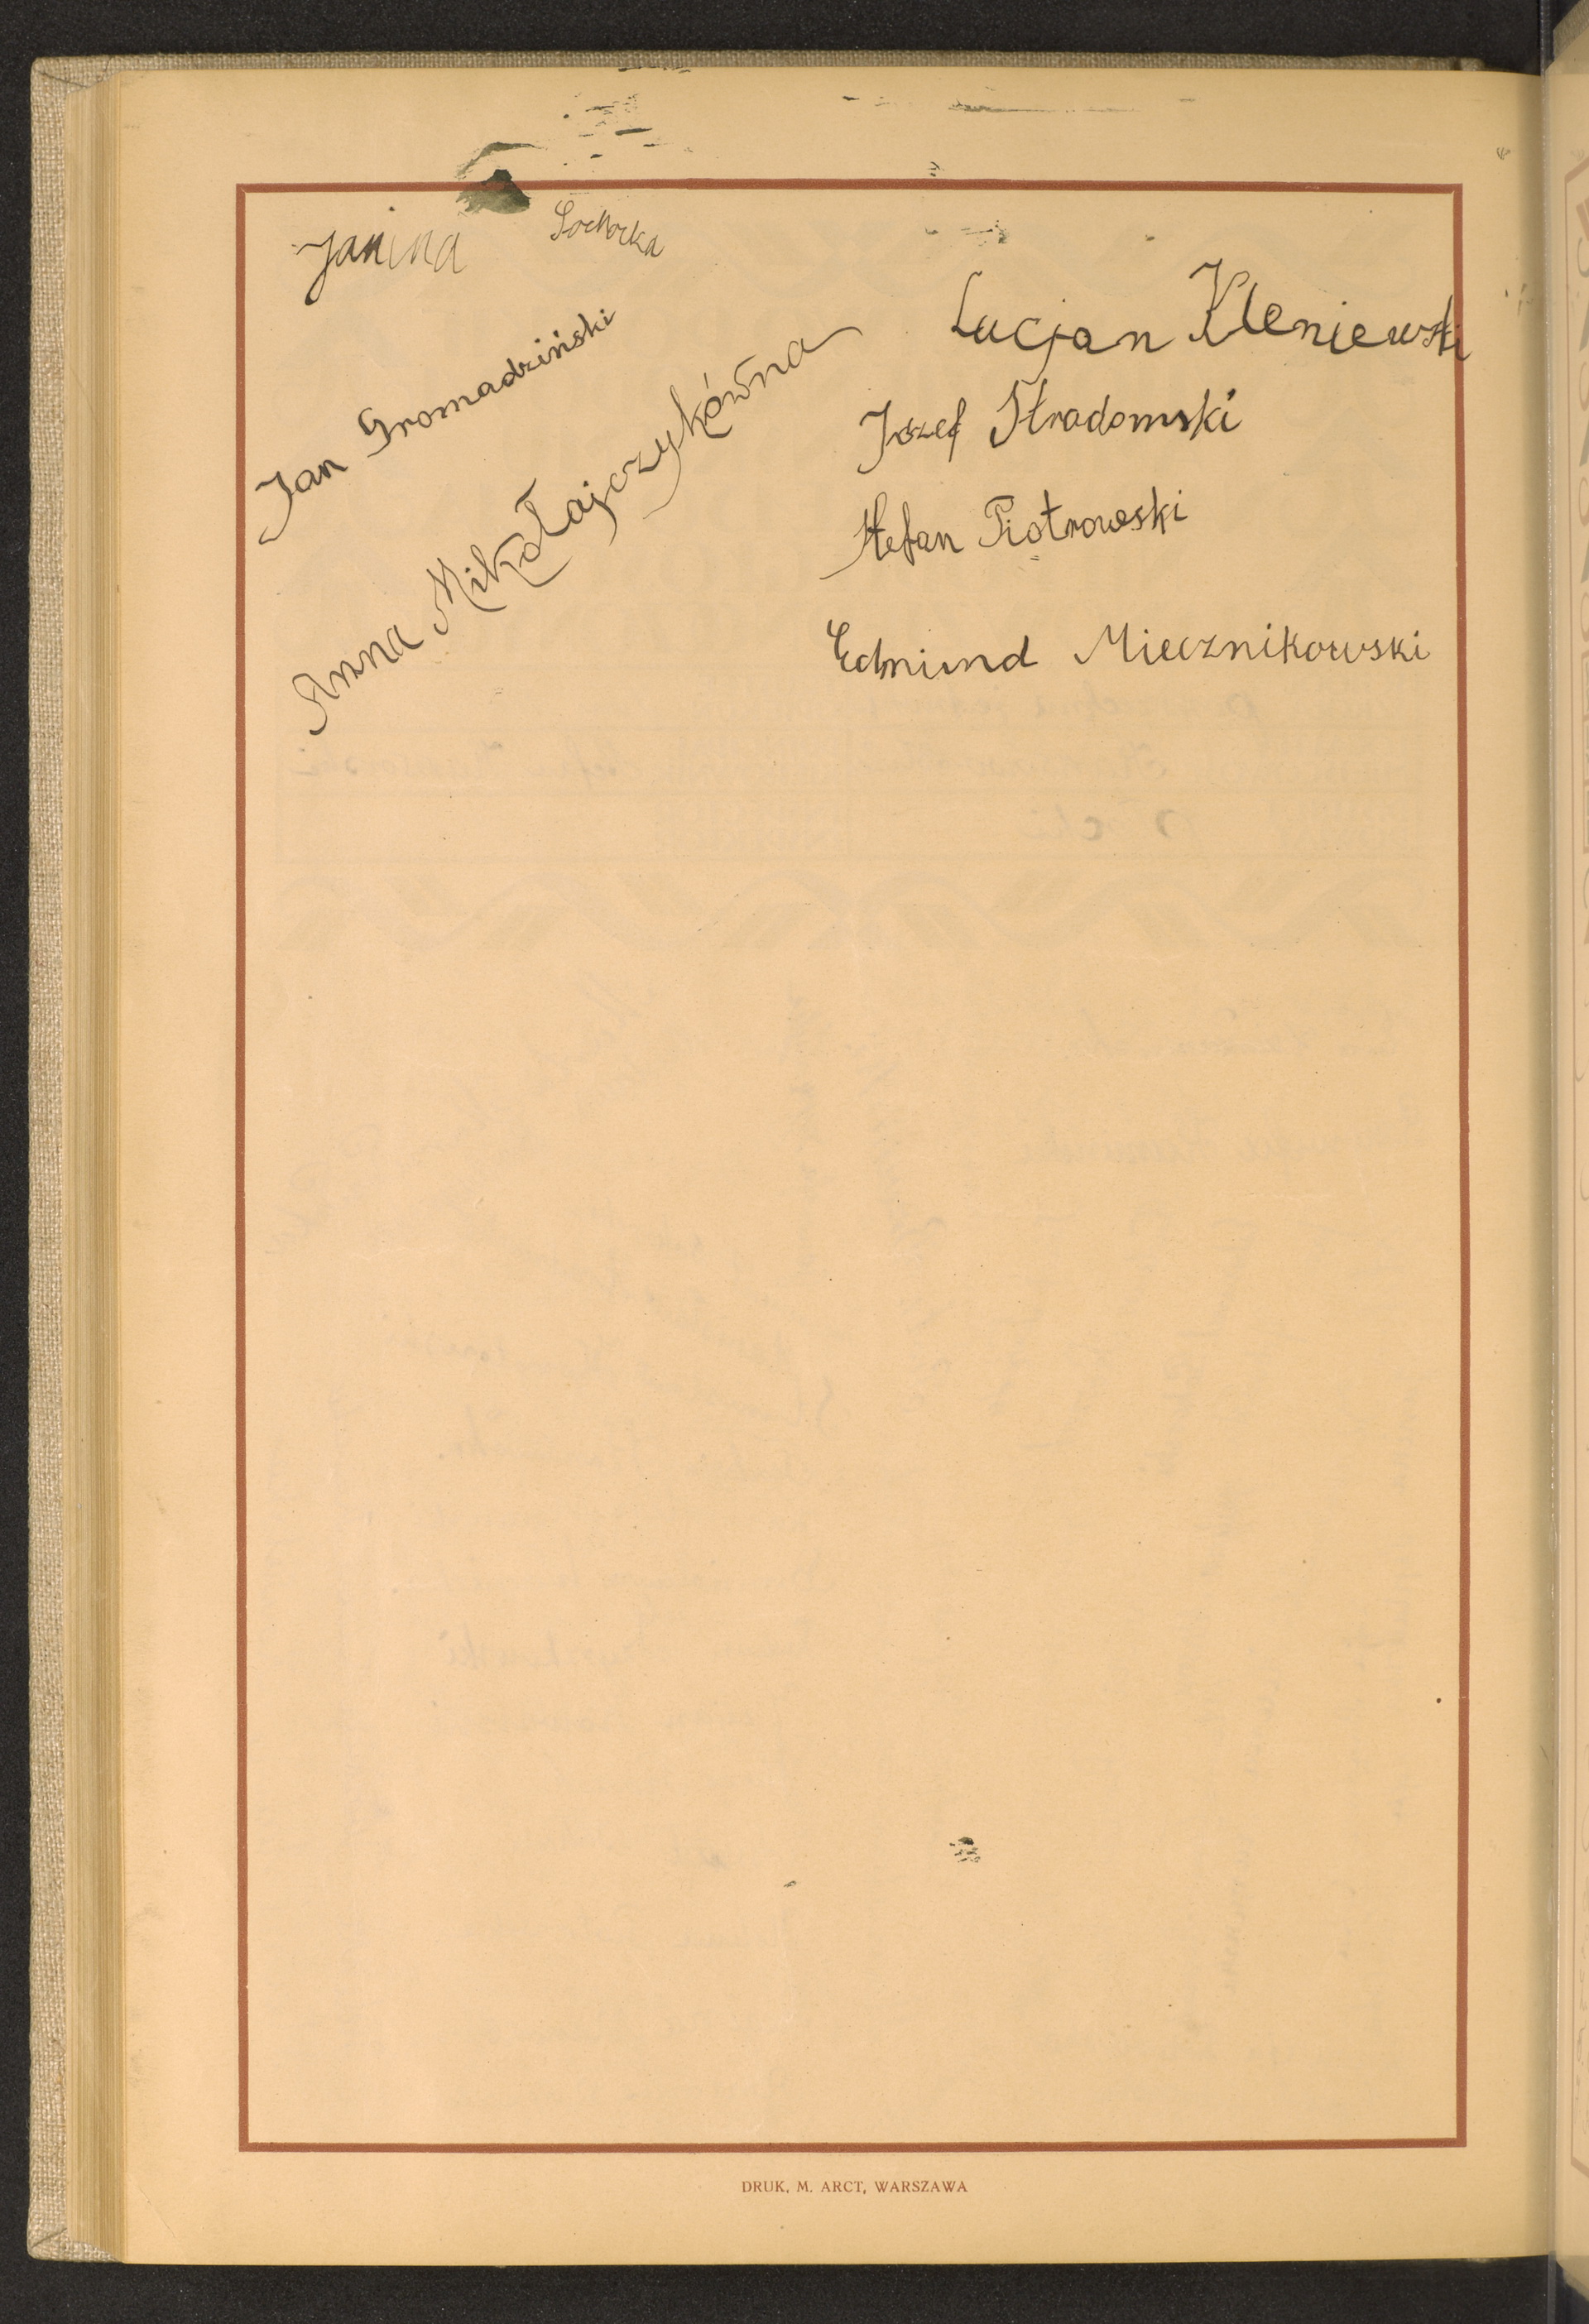 Janina Sochocka
Jan Gromadziński
Anna Mikołajczykówna
Lucjan Kleniewski
Józef Stradomski
Stefan Piotrowski
Edmund Miecznikowski
DRUK. M. ARCT, WARSZAWA